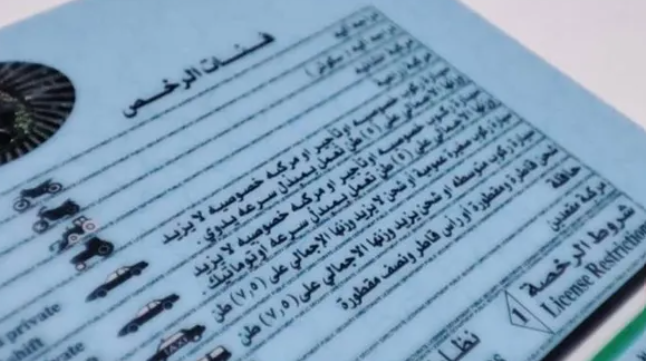 فئات الرخص
دراجة آلية
دراجة آلية (سكوتر)
مركبة زراعية
سيارة ركوب خصوصية أو تأجير أو مركبة خصوصية لا يزيد
وزنها الإجمالي على (٥) طن تعمل بمبدل سرعة يدوي.
سيارة ركوب خصوصية أو تأجير أو مركبة خصوصية لا يزيد
وزنها الإجمالي على (٥) طن تعمل بمبدل سرعة أوتوماتيك.
سيارة ركوب صغيرة عمومية أو شحن لا يزيد وزنها الإجمالي على (٧,٥) طن
سيارة ركوب متوسطة أو شحن يزيد وزنها الاجمالي على (٧,٥) طن
شحن قاطرة ومقطورة أو راس قاطر ونصف مقطورة
حافلة
مركبة مقعدين
شروط الرخصة
License Restriction
1
private
shift
private
TAXI